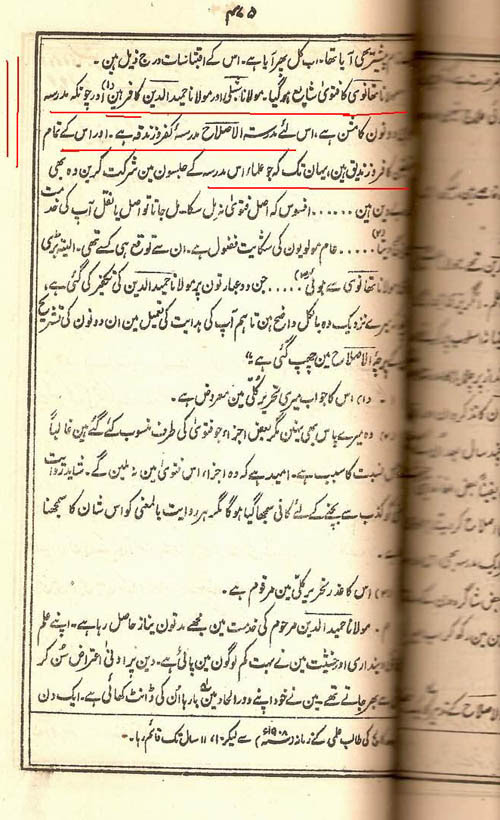 ۴۷۵
پیشتر بھی آیا تھا۔ اب کل پھر آیا ہے۔ اس کے اقتباسات درج ذیل ہین۔
مولانا تھانوی کا فتویٰ شایع ہو گیا۔ مولانا شبلی اور مولانا حمید الدین کافر ہین (۱) اور چونکہ مدرسہ
دونون کا مشن ہے۔ اس لئے مدرستہ الاصلاح مدرسۂ کفر و زندقہ ہے۔ اور اس کے تمام
کافر و زندیق ہین، یہان تک کہ جو علماء اس مدرسہ کے جلسون مین شرکت کرین وہ بھی
بے دین ہین ...... افسوس کہ اصل فتویٰ نہ مل سکا۔ مل جاتا تو اصل یا نقل آپ کی خدمت
(۲) ..... عام مولویون کی شکایت فضول ہے۔ ان سے توقع ہی کسے تھی۔ البتہ بڑی
مولانا تھانوی سے ہوئی (۳) ..... جن دو عبارتون پر مولانا حمید الدین کی تکفیر کی گئی ہے،
میرے نزدیک وہ بالکل واضح ہین تاہم آپ کی ہدایت کی تعمیل مین ان دونون کی تشریح
پرچہ الاصلاح مین چھپ گئی ہے"
(۱) اس کا جواب میری تحریر کلی مین معروض ہے۔
وہ میرے پاس بھی نہین مگر بعض اجزاء جو فتویٰ کی طرف منسوب کئے گئے ہین غالباً
نسبت کا سبب ہے۔ امید ہے کہ وہ اجزاء اس فتویٰ مین نہ ملین گے۔ شاید روایت
کو کذب سے بچنے کے لئے کافی سمجھا گیا ہو گا مگر ہر روایت بالمعنی کو اس شان کا سمجھنا
اس کا عذر تحریر کلی مین مرقوم ہے۔
مولانا حمید الدین مرحوم کی خدمت مین مجھے مدتون نیاز حاصل رہا ہے۔ اپنے علم
دینداری اور خشیت مین نے بہت کم لوگون مین پائی ہے۔ دین پر ادنیٰ اعتراض سن کر
بپھر جاتے تھے۔ مین نے خود اپنے دور الحاد مین بارہا ان کی ڈانٹ کھائی ہے۔ ایک دن
کی طالب علمی کے زمانہ ۱۹۰۸ء سے لیکر ۱۰، ۱۱ سال تک قائم رہا۔